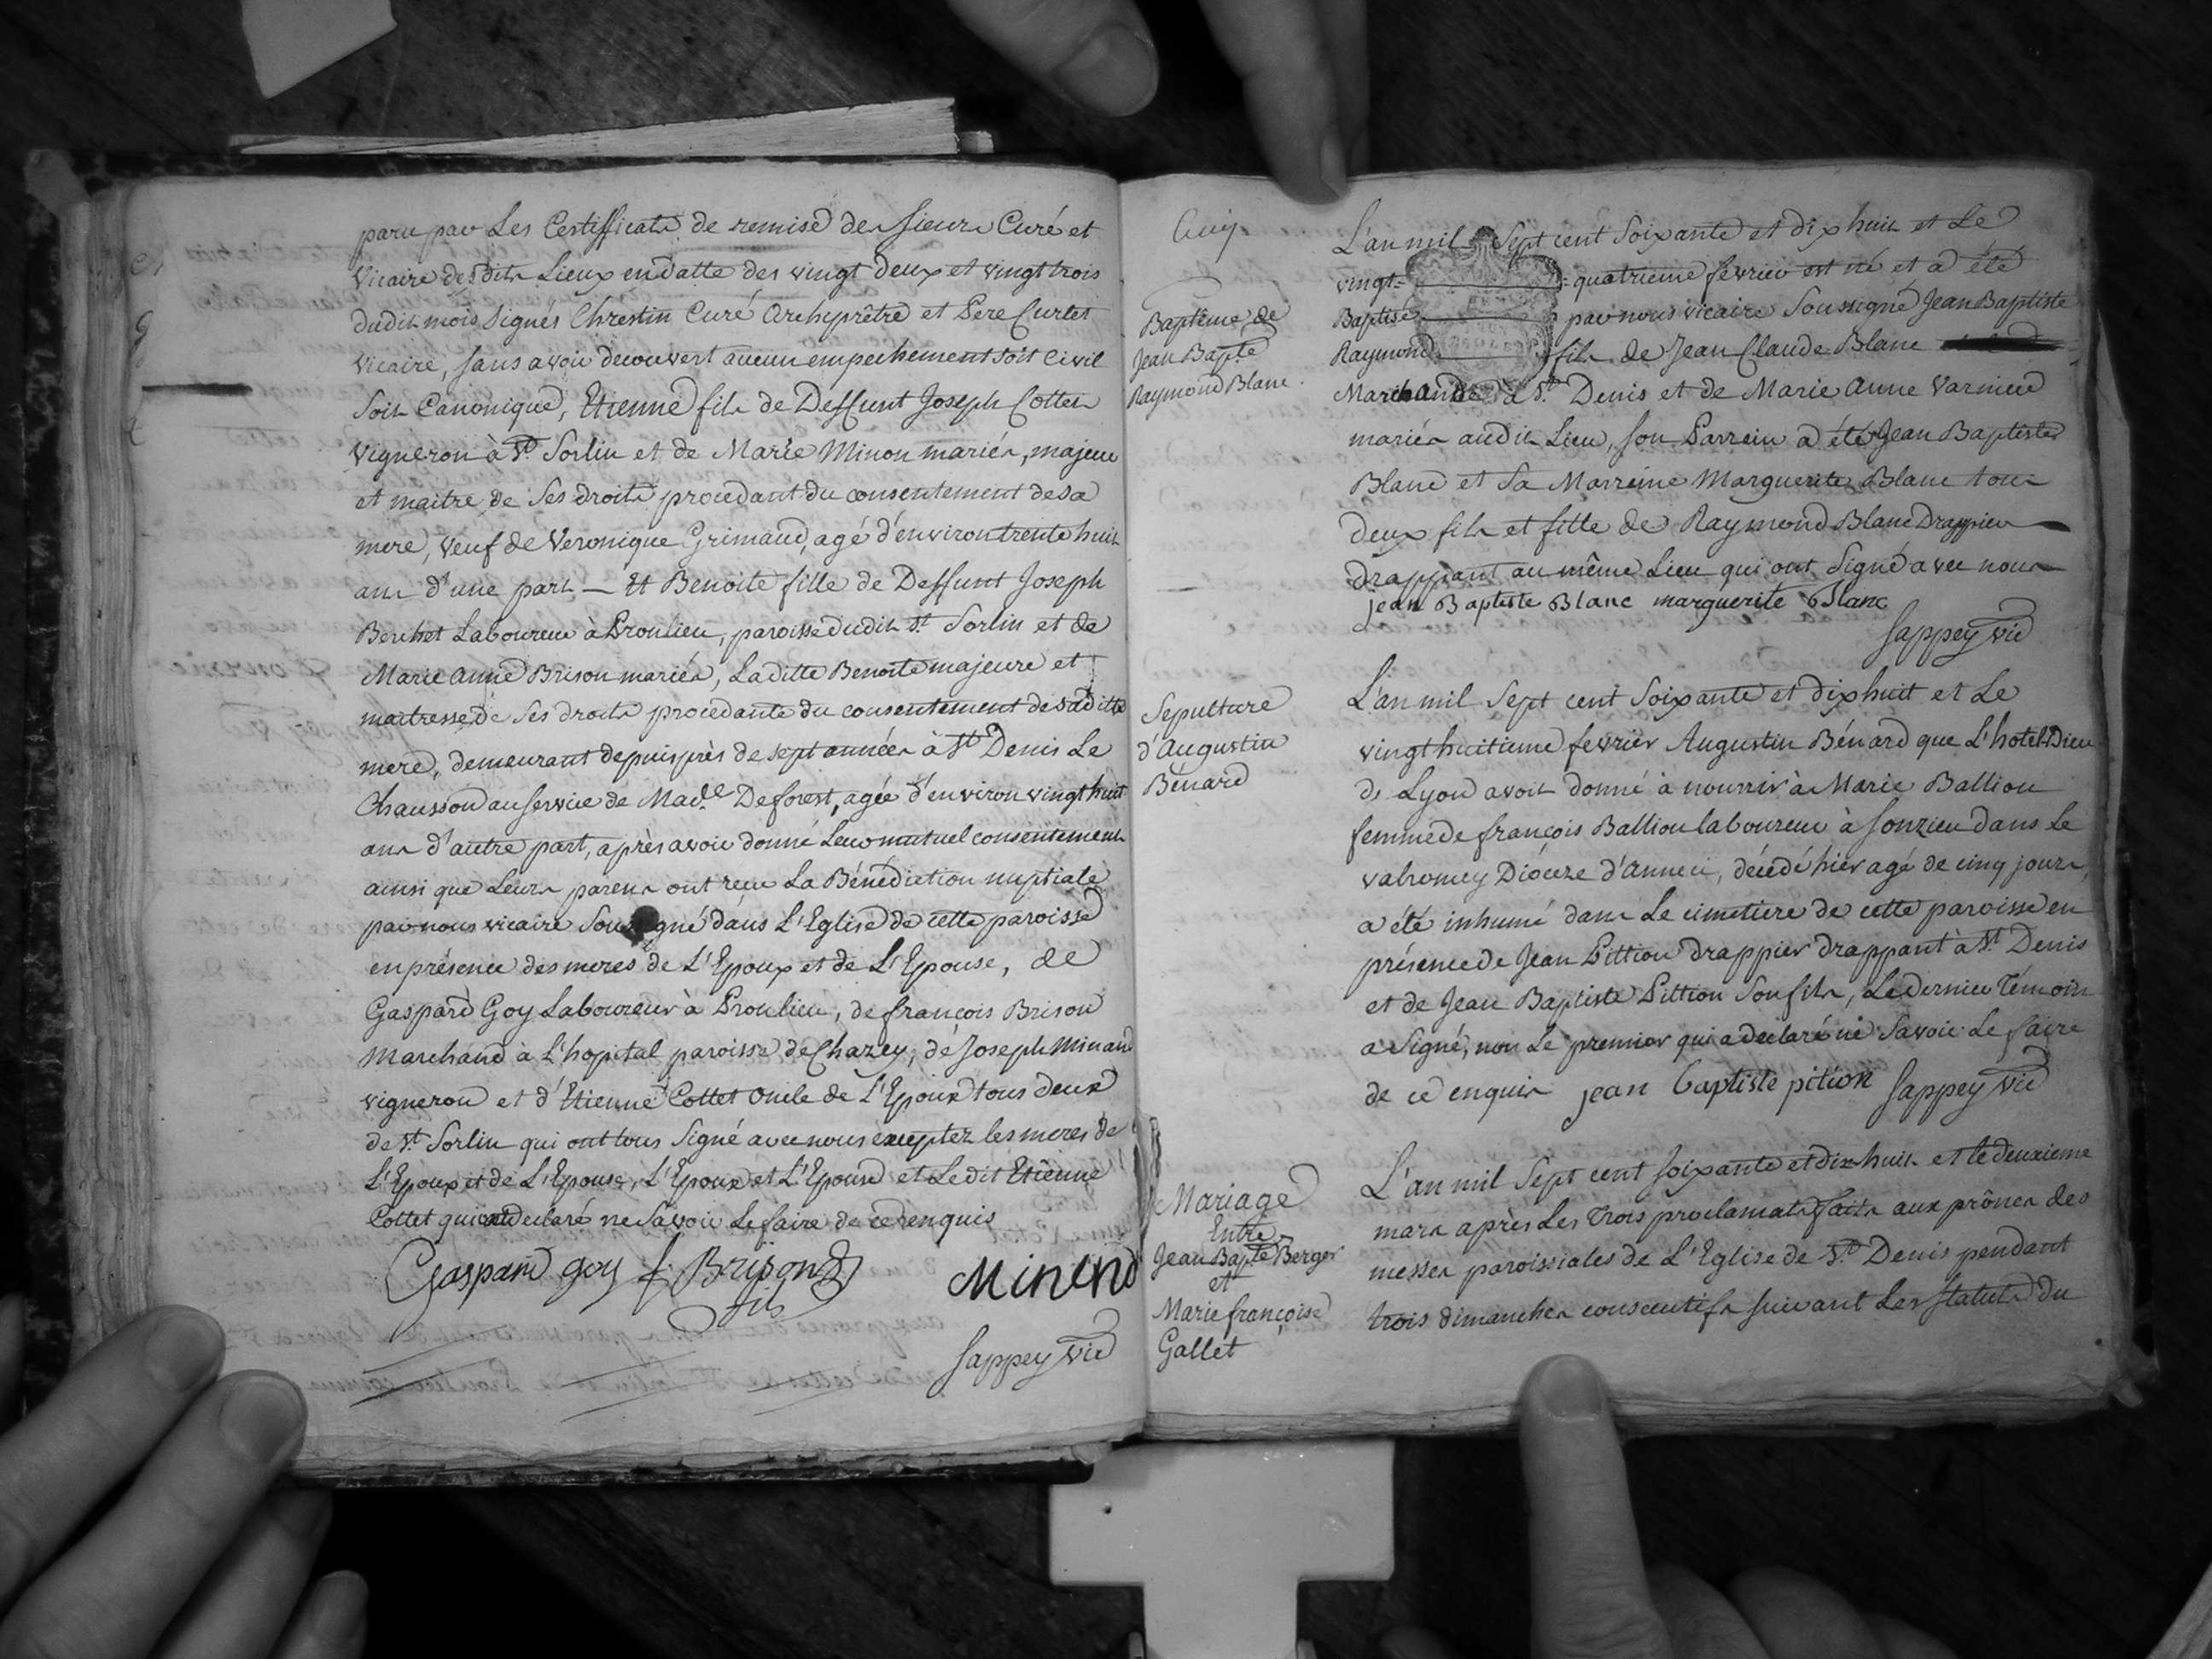 paru par Les Certifficats de remise des sieurs Curé et
Vicaire desdits Lieux en datte des vingt deux et vingt trois
dudit mois signés Chrestin Curé Archiprêtre et Pere Curtet
vicaire, sans avoir decouvert aucun empechement soit Civil
soit Canonique, Etienne fils de Deffunt Joseph Cottet
vigneron à St. Sorlin et de Marie Minon mariés, majeur
et maitre de ses droits procedant du consentement de sa
mere, veuf de Veronique Grimaud, agé d'environ trente huit
ans d'une part — Et Benoite fille de Deffunt Joseph
Berthet Laboureur à Proulieu, paroisse dudit St. Sorlin et de
Marie Anne Brison mariés, Laditte Benoite majeure et
maitresse de ses droits procedante du consentement de saditte
mere, demeurant depuis près de sept années à St Denis Le
Chausson au service de Made. Deforest, agée d'environ vingt huit
ans d'autre part, après avoir donné Leur mutuel consentement
ainsi que Leurs parens ont reçu La Bénédiction nuptiale
par nous vicaire soussigné dans L'Eglise de cette paroisse
en présence des meres de L'Epoux et de L'Epouse, de
Gaspard Goy Laboureur à Proulieu, de françois Brison
Marchand à L'hopital paroisse de Chazey, de Joseph Minand
vigneron et d'Etienne Cottet oncle de L'Epoux tous deux
de St. Sorlin qui ont tous signé avec nous exceptez les meres de
L'Epoux et de L'Epouse, L'Epoux et L'Epouse et Ledit Etienne
Cottet qui ont declaré ne savoir Le faire de ce enquis
Gaspard goy f. Brison
fils
Minend
Sappey vic
Baptême de
Jean Bapte
Raymond Blanc
L'an mil sept cent soixante et dix huit et Le
vingt quatrieme fevrier est né et a été
Baptisé par nous vicaire soussigné Jean Baptiste
Raymond fils de Jean Claude Blanc
Marchand à St. Denis et de Marie Anne Varnieu
mariés audit Lieu, son Parrein a été Jean Baptiste
Blanc et sa Marreine Marguerite Blanc tous
deux fils et fille de Raymond Blanc Drappier
drappant au même Lieu qui ont signé avec nous
jean Baptiste Blanc marguerite Blanc
Sappey vic
Sepulture
d'Augustin
Bénard
L'an mil sept cent soixante et dix huit et Le
vingt huitieme fevrier Augustin Bénard que L'hotel-Dieu
de Lyon avoit donné à nourrir à Marie Ballion
femme de françois Ballion laboureur à Sonzieu dans Le
valromey Diocèze d'Anneci, décédé hier agé de cinq jours,
a été inhumé dans Le cimetiere de cette paroisse en
présence de Jean Pittion drappier drappant à St Denis
et de Jean Baptiste Pittion son fils, Le dernier témoin
a signé, non Le premier qui a declaré ne savoir Le faire
de ce enquis jean baptiste pition Sappey vic
Mariage
Entre
Jean Bapte Berger
et
Marie françoise
Gallet
L'an mil sept cent soixante et dix huit et le deuxieme
mars après Les trois proclamats faits aux prônes des
messes paroissiales de L'Eglise de St. Denis pendant
trois dimanches consecutifs suivant Les statuts du